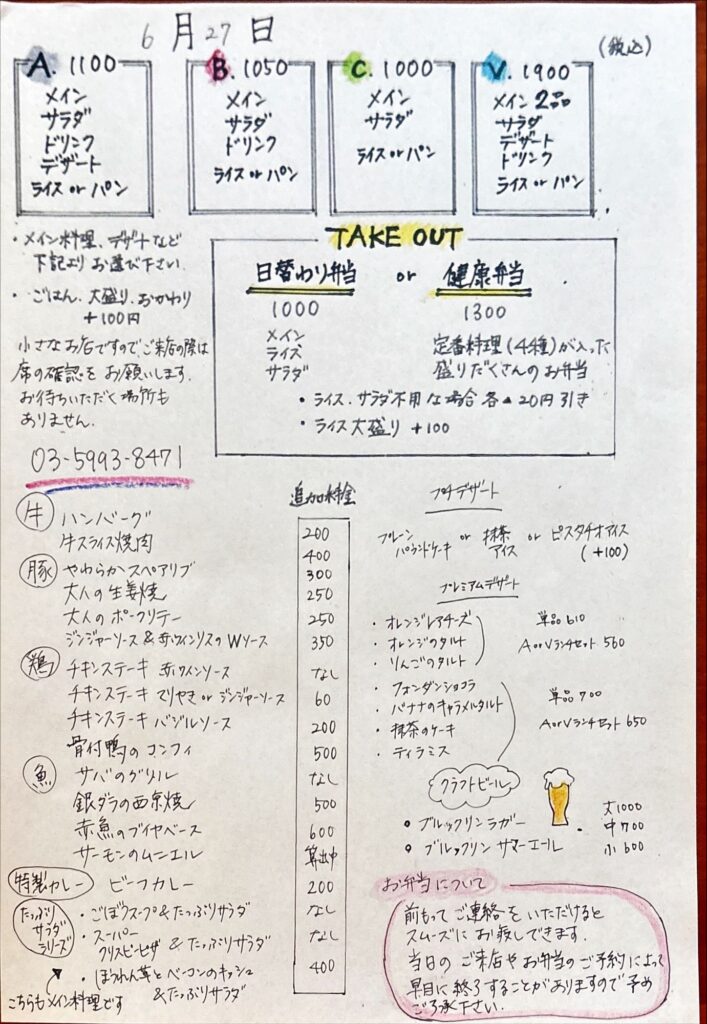 6月27日
(税込)
A. 1100
メイン
サラダ
ドリンク
デザート
ライス or パン
B. 1050
メイン
サラダ
ドリンク
ライス or パン
C. 1000
メイン
サラダ
ライス or パン
V. 1900
メイン 2品
サラダ
デザート
ドリンク
ライス or パン
・メイン料理、デザートなど
下記よりお選び下さい.
・ごはん.大盛り.おかわり
+100円
小さなお店ですのでご来店の際は
席の確認をお願いします.
お待ちいただく場所も
ありません.
03-5993-8471
TAKE OUT
日替わり弁当 or 健康弁当
1000
メイン
ライス
サラダ
1300
定番料理(4種)が入った
盛りだくさんのお弁当
・ライス.サラダ不用な場合 各▲20円引き
・ライス大盛り +100
追加料金
牛 ハンバーグ 200
牛スライス焼肉 400
豚 やわらかスペアリブ 300
大人の生姜焼 250
大人のポークソテー 250
ジンジャーソース&赤ワインソースのWソース 350
鶏 チキンステーキ 赤ワインソース なし
チキンステーキ てりやき or ジンジャーソース 60
チキンステーキ バジルソース 200
骨付鴨のコンフィ 500
魚 サバのグリル なし
銀ダラの西京焼 500
赤魚のブイヤベース 600
サーモンのムニエル 算出中
特製カレー ビーフカレー 200
たっぷり
サラダ
シリーズ
・ごぼうスープ&たっぷりサラダ なし
・スーパー
クリスピーピザ &たっぷりサラダ なし
・ほうれん草とベーコンのキッシュ
&たっぷりサラダ 400
こちらもメイン料理です
プチデザート
プレーン
パウンドケーキ or 抹茶
アイス or ピスタチオアイス
(+100)
プレミアムデザート
・オレンジレアチーズ
・オレンジのタルト
・りんごのタルト
単品610
AorVランチセット 560
・フォンダンショコラ
・バナナのキャラメルタルト
・抹茶のケーキ
・ティラミス
単品700
AorVランチセット 650
クラフトビール
ブルックリンラガー
ブルックリン サマーエール
大1000
中700
小600
お弁当について
前もってご連絡をいただけると
スムーズにお渡しできます.
当日のご来店やお弁当のご予約によって
早目に終了することがありますので予め
ご了承下さい.